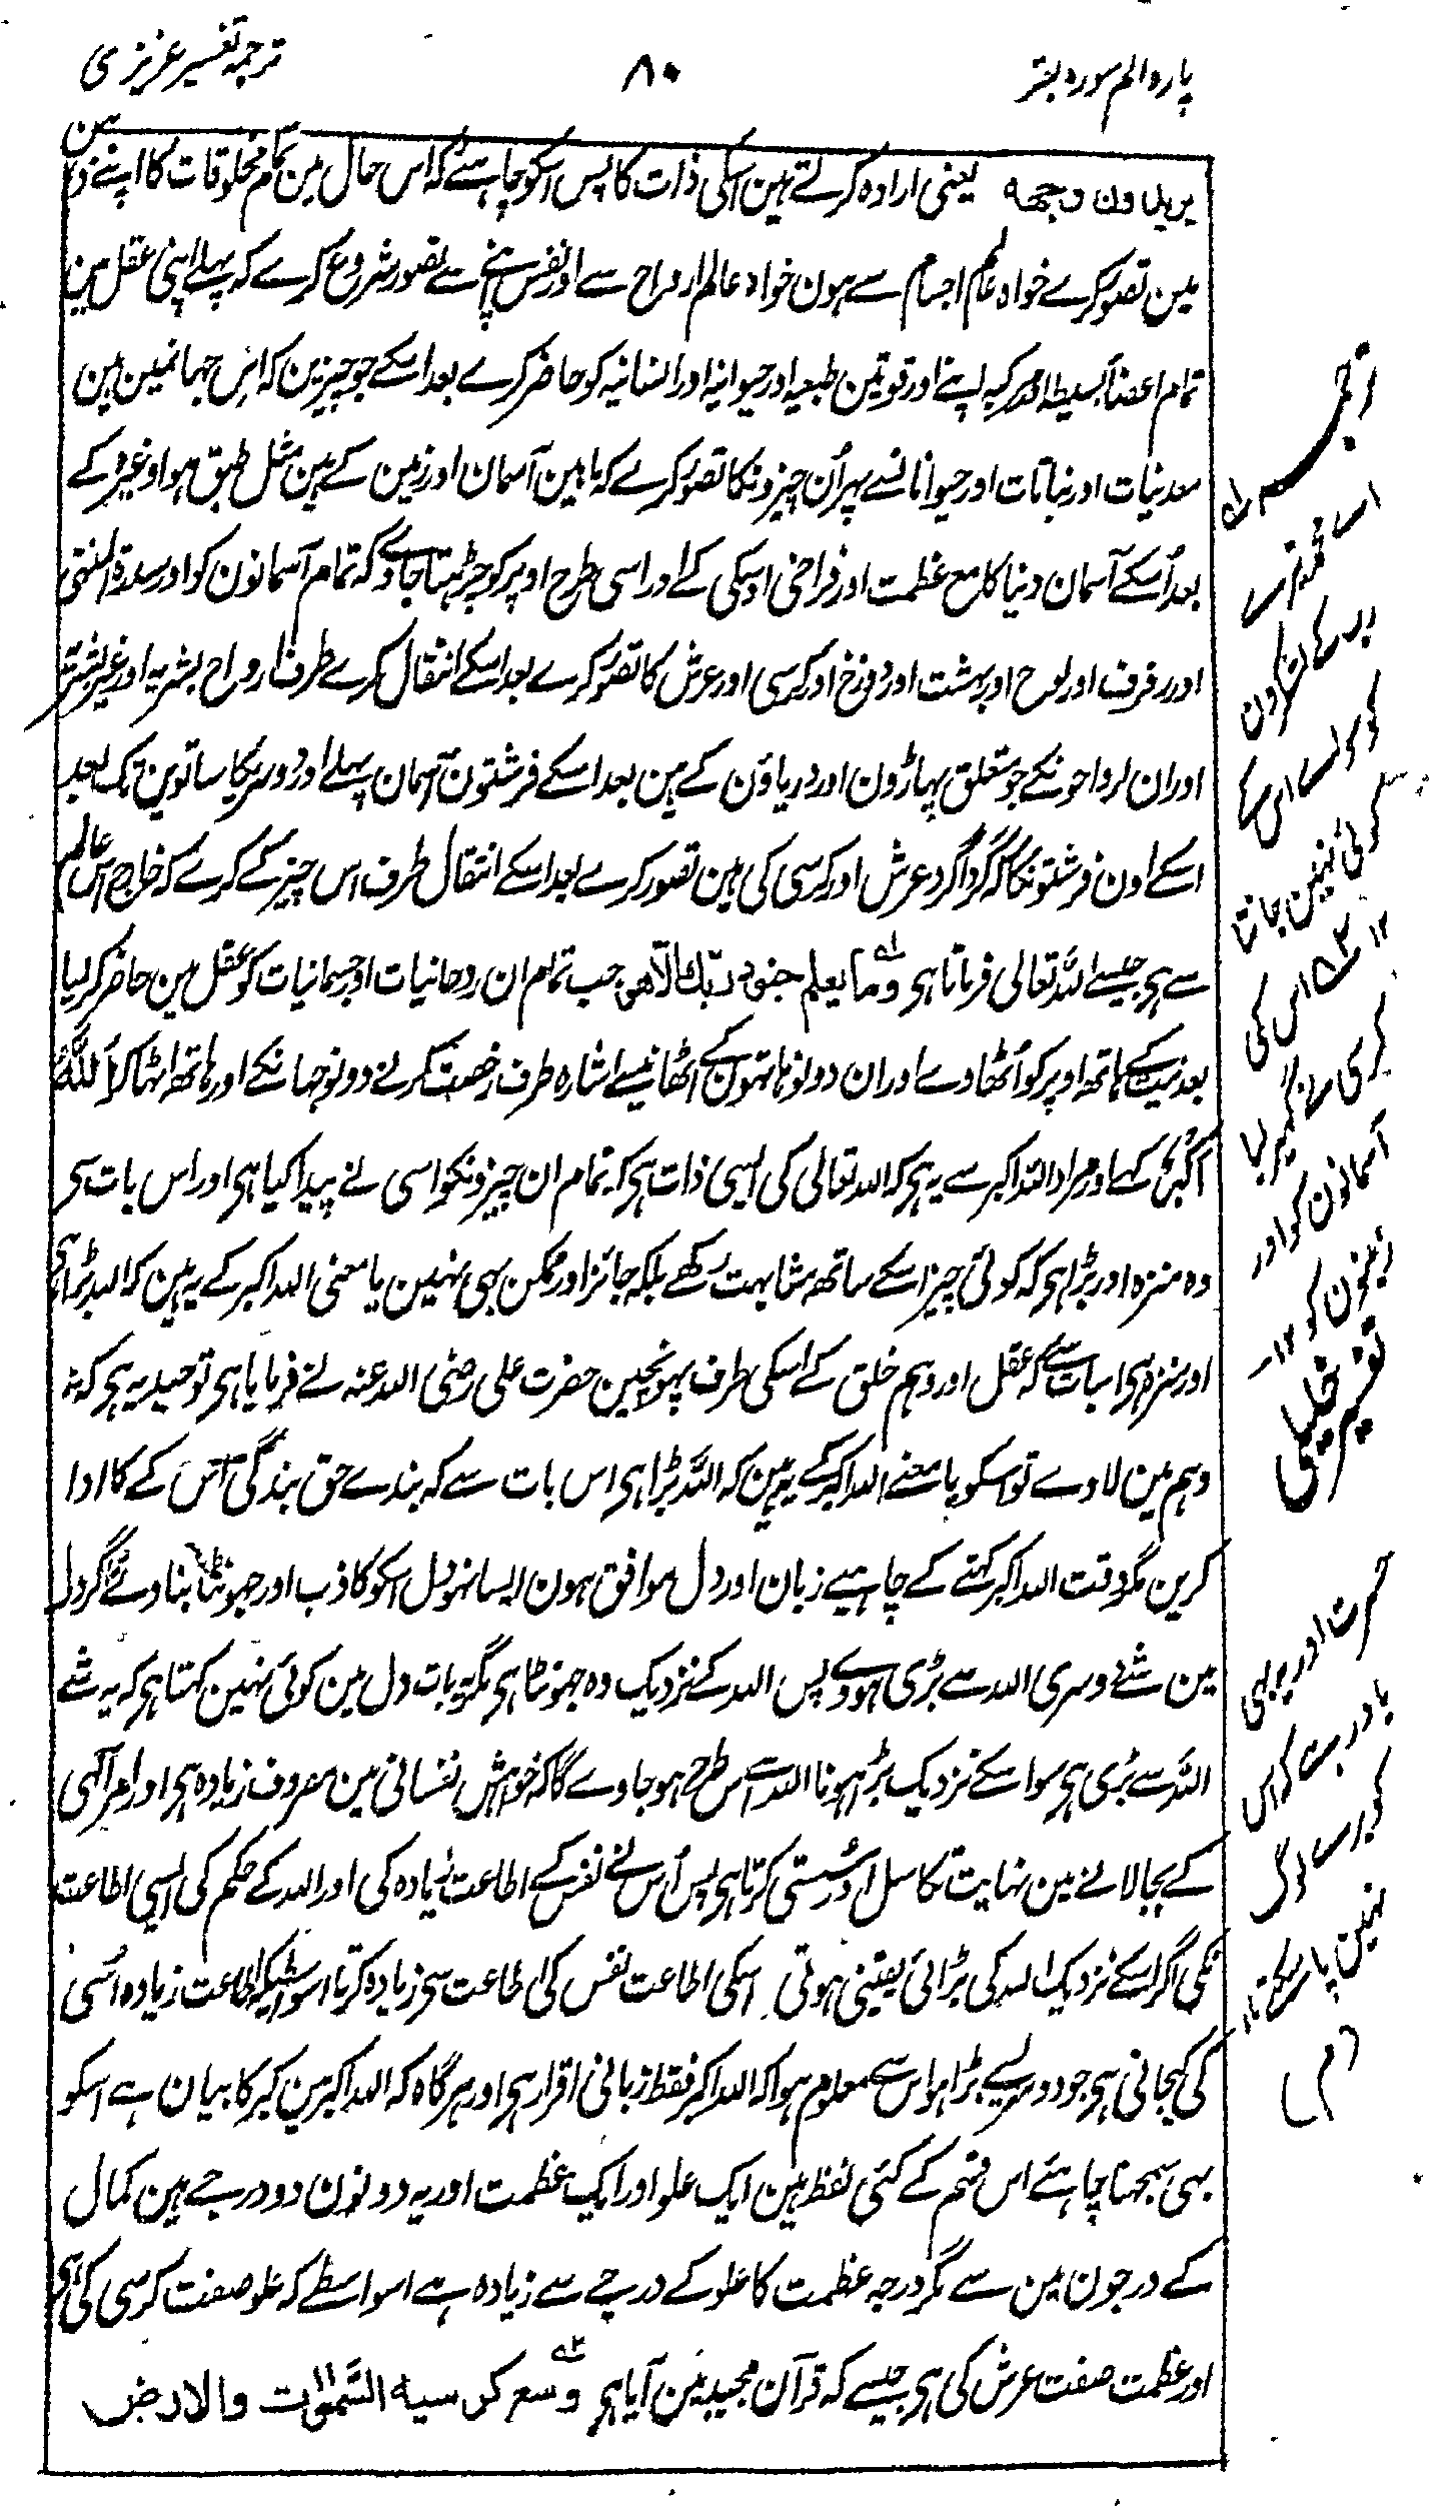 پارہ الم سورہ بقر
۸۰
ترجمہ تفسیر عزیزی
یریدون وجھه یعنی ارادہ کرتے ہین اسکی ذات کا پس اسکو چاہئے کہ اس حال مین تمام مخلوقات کا اپنے ذہن
مین تصور کرے خواہ عالم اجسام سے ہون خواہ عالم ارواح سے اور نفس اپنے سے تصور شروع کرے کہ پہلے اپنی عقل مین
تمام اعضا بسیطہ اور مرکبہ اپنے اور قوتین طبعیہ اور حیوانیہ اور انسانیہ کو حاضر کرے بعد اسکے جو چیزین کہ اس جہانمین ہین
معدنیات اور نباتات اور حیوانات پہر اُن چیزونکا تصور کرے کہ مابین آسمان اور زمین کے ہین مثل طبق ہوا وغیرہ کے
بعد اُسکے آسمان دنیا کا مع عظمت اور فراخی اوسکی کے اور اسی طرح اوپر کو چڑہتا جاوے کہ تمام آسمانون کو اور سدرۃ المنتہی
اور رفرف اور لوح اور بہشت اور دوزخ اور کرسی اور عرش کا تصور کرے بعد اسکے انتقال کرے طرف ارواح بشریہ اور غیر بشریہ
اور ان ارواحونکے جو متعلق پہاڑون اور دریاؤن کے ہین بعد اسکے فرشتون آسمان پہلے اور دوسریکا ساتوین تک بعد
اسکے اون فرشتونکا کہ گرداگرد عرش اور کرسی کی ہین تصور کرے بعد اسکے انتقال طرف اس چیز کے کرے کہ خارج اس عالم
سے ہی جیسے اللہ تعالی فرماتا ہی وما یعلم جنود ربك الا ھو جب تمام ان روحانیات اور جسمانیات کو عقل مین حاضر کر لیا
بعد نیت کے ہاتھ اوپر کو اُٹھاوے اور ان دونو ہاتہون کے اٹھانیسے اشارہ طرف رخصت کرنے دونو جہانکے اور ہاتھ اٹہا کر اَللّٰهُ
اَکْبَرُ کہے اور مراد اللہ اکبر سے یہ ہی کہ اللہ تعالی کی ایسی ذات ہی کہ تمام ان چیزونکو اسی نے پیدا کیا ہی اور اس بات سے
وہ منزہ اور بڑا ہی کہ کوئی چیز اسکے ساتھ مشابہت رکھے بلکہ جائز اور ممکن بھی نہین یا معنی اللہ اکبر کے یہ ہین کہ اللہ بڑا ہی
اور منزہ ہی اس بات سے کہ عقل اور وہم خلق کے اسکی طرف پہونچین حضرت علی رضی اللہ عنہ نے فرمایا ہی توحید یہ ہی کہ نہ
وہم مین لاوے تو اسکو یا معنے اللہ اکبر کے یہ ہین کہ اللہ بڑا ہی اس بات سے کہ بندے حق بندگی اس کے کا ادا
کرین مگر وقت اللہ اکبر کہنے کے چاہیے زبان اور دل موافق ہون ایسا نہو دل اسکو کاذب اور جہونٹا بنا دے اگر دل
مین شے دوسری اللہ سے بڑی ہووے پس اللہ کے نزدیک وہ جہونٹا ہی مگر یہ بات دل مین کوئی نہین کہتا ہی کہ یہ شے
اللہ سے بڑی ہی سو اسکے نزدیک بڑا ہونا اللہ سے اس طرح ہو جاوے گا کہ خواہش نفسانی مین مصروف زیادہ ہی اور امر الٰہی
کے بجا لانے مین نہایت تکاسل اور سُستی کرتا ہی پس اُس نے نفس کے اطاعت زیادہ کی اور اللہ کے حکم کی ایسی اطاعت
نکی اگر اسکے نزدیک اللہ کی بڑائی یقینی ہوتی اسکی اطاعت نفس کی اطاعت سی زیادہ کرتا اسواسطیکہ اطاعت زیادہ اُسی
کی کیجاتی ہی جو دوسریسے بڑا ہو اس سے معلوم ہوا کہ اللہ اکبر فقط زبانی اقرار ہی اور ہر گاہ کہ اللہ اکبر مین کبر کا بیان ہے اسکو
بہی سمجھنا چاہئے اس قسم کے کئی لفظ ہین ایک علو اور ایک عظمت اور یہ دونون دو درجے ہین کمال
کے درجون مین سے مگر درجہ عظمت کا علو کے درجے سے زیادہ ہے اسواسطے کہ علو صفت کرسی کی ہی
اور عظمت صفت عرش کی ہی جیسے کہ قرآن مجید مین آیا ہی وسع کرسیه السموات والارض
ترجمہ
پروردگار
کوئی نہین جانتا
۱۲
اس کی
کرسی نے گہیر لیا
آسمانون کو اور
زمینون کو ۱۲